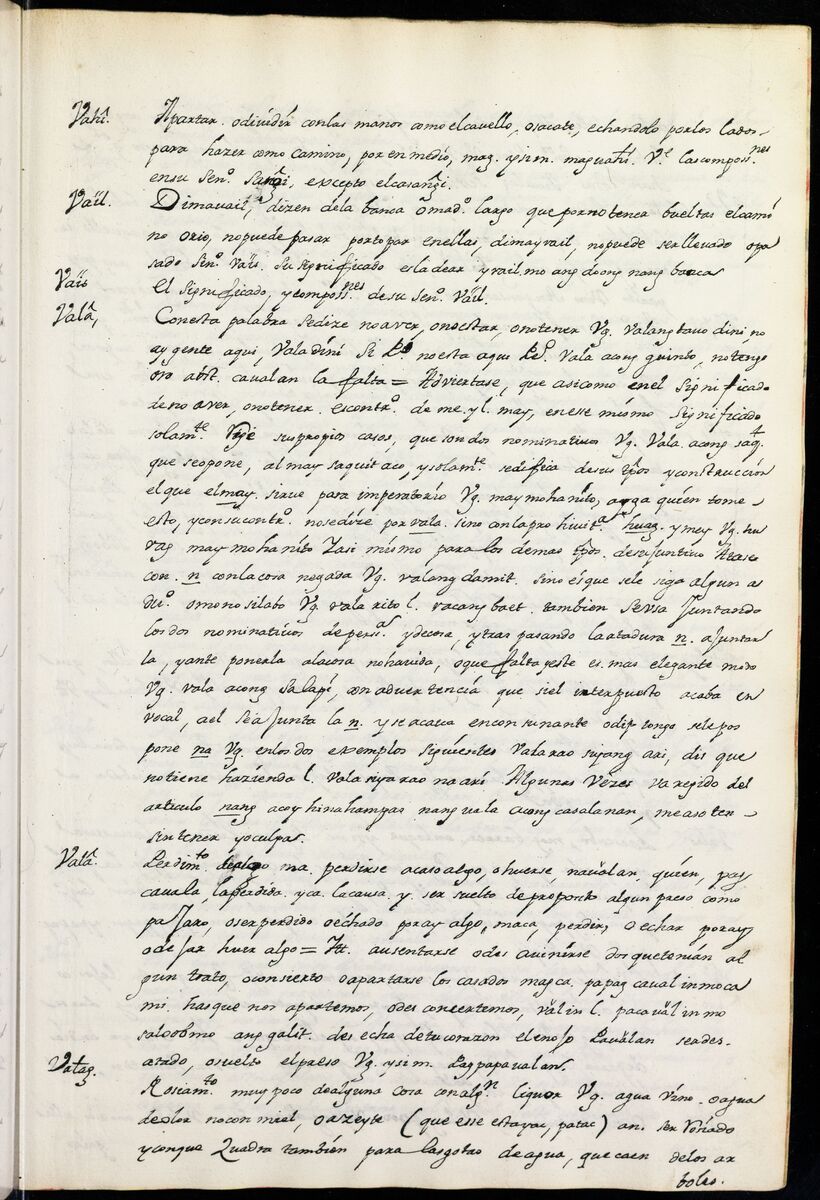 Vahî. Apartar. odividir conlas manos como elcavello, osacate, echandolo porlos lados,
para hazer como camino, por en medio, mag. ysin. maguahi. Vᵉ. lascomposs.ⁿᵉˢ
ensu senº. exceptо elcasangi.
Vaïl. Dimavail, dizen dela banca omadº. largo que pornotenca bueltas elcami
no orio, nopuede pasar portopar enellas, dimayvail, nopuede serllevado opa
sado sinº. vaïs. Susignificado esladear yvail.mo ang doong nang banca
Vaïs El significado, ycomposs.ⁿᵉˢ desu senº. Vaïl.
Valâ, Conesta palabra sedize noaver, onoestar, onotener Vg. Valang tavo dini, no
ay gente aqui, Vala dini si Pº noesta aqui Pº. Vala acong guinto, notengo
oro abst. cavalan la falta = Adviertase, que asicomo enel significado
denoaver, onotener. escontrº. de me. yl. may, enese mismo significado
solam.ᵗᵉ suspropios casos, que son dos nominativos Vg. Vala. acong saq.
que seopone, al may saquit aco, ysolam.ᵗᵉ sedifica desus tpºs yconstrucción
elque elmay. sirve para imperatorio Vg. maymohanito, quien tome
esto, ysucontrº. nosedize por vala. sino conlaprohivit.ᵃ huag. ymey Vg. hu
vag maymohanito Yasi mismo para los demas tpºs. desujuntivo
con. n conlacosa negada Vg. valang damit. sino esque sele siga algun ad
duº. omonosilabo Vg. vala rito l. vacang baet. tambien seusa juntando
losdos nominativos depers.ᵃˢ ydecosa, ytras pasando laatadura n. ajuntar
la, yante ponerla alacosa nohavida, oque falta yeste es. mas elegante modo
Vg. vala acong salapi, advertencia que siel interpuesto acaba en
vocal, ael sea junta la n. ysi acava enconsonante odiptongo sele pos
pone na Vg. enlosdos exemplos siguientes vala rao siyang ari, dis que
notiene hazienda l. vala niya rao na ari Algunas Vezes va regido del
articulo nang acoy hinahampas nang vala acong casalanan, measoten
sintener yoculpas.
Valâ. Perdim.ᵗᵒ ma. perdirse acasoalgo, ohuirse, navalan, quien, pag
cavala, laperdida. yca. lacausa. y. ser suelto deproposito algun preso como
paxaro, oserperdido oechado poray algo, maca, perdir, o echar poray
odexar huir algo = Itt. ausentarse odes avinirse dos quetenian al
gun trato, oconsierto oapartarse los casados magca. papag caval inmoca
mi. hasque nos apartemos, odes concertemos, valin l. pacavalin mo
saloobmo ang galit. des echa detucorazon elenojo Pavalan seades
atado, osuelto elpreso Vg. ysim. Pagpapavalan.
Vatag. Rosiam.ᵗᵒ muy poco dealguna cosa conalg.ⁿ liquor Vg. agua vino. oagua
deolor nocon miel, oazeyte (que esse estayac, patac) an. ser rosiado
yconque Quadra también para lasgotas deagua, que caen delos ar
boles.